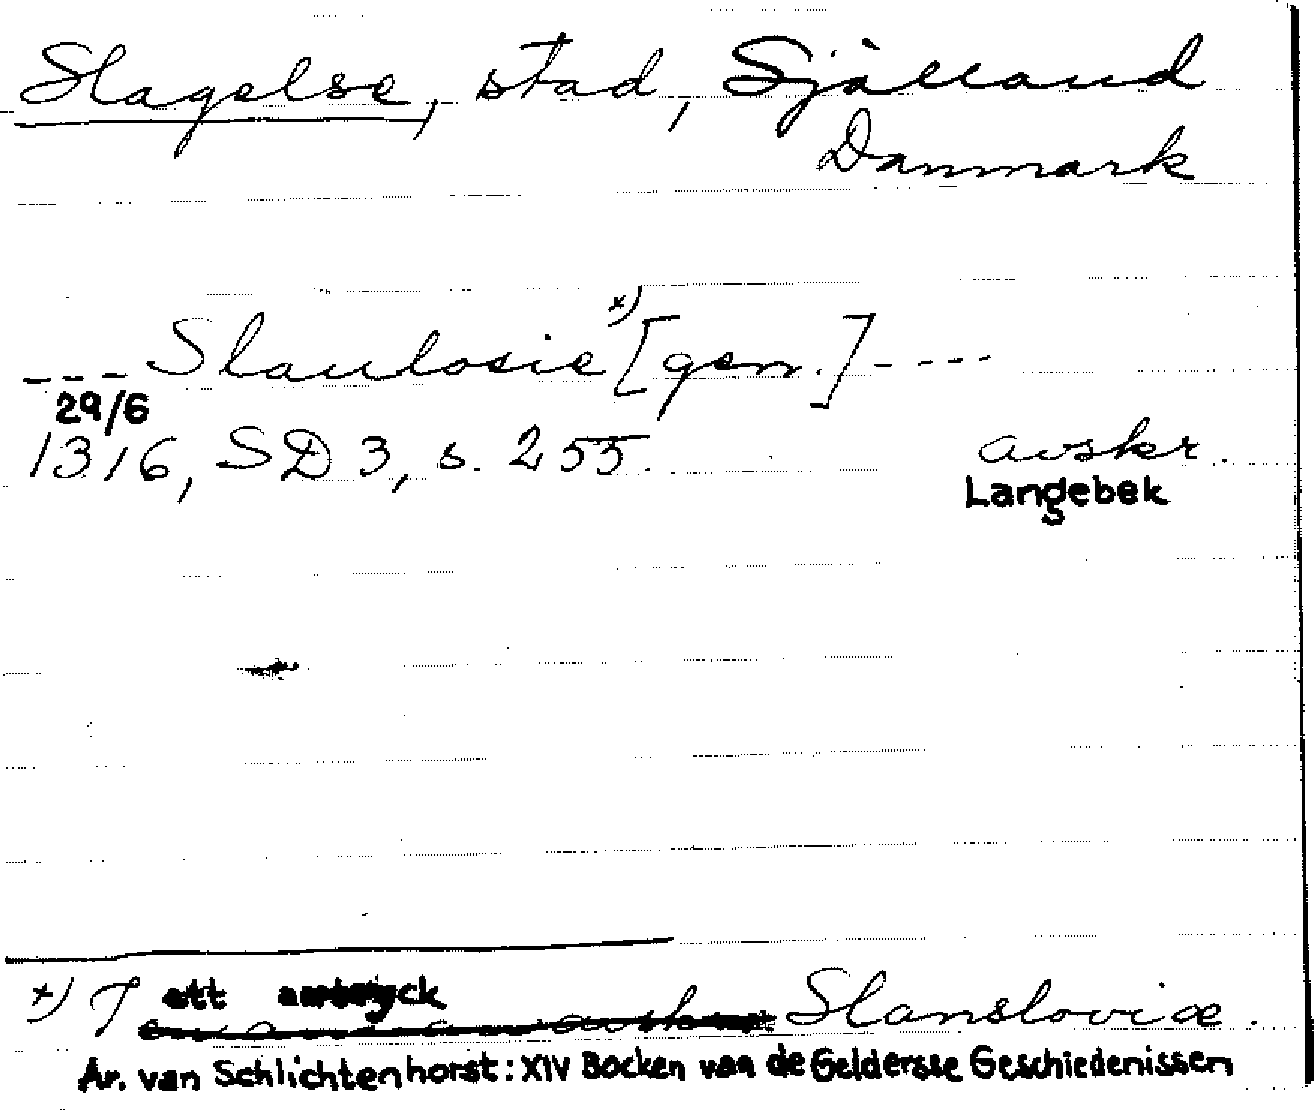 Slagelse, stad, Själland
Danmark
--- Slaulosie x) [gen.] ----
29/6
1316, SD 3, s. 255.
avskr.
Langebek
x) I ett avtryck
Slansloviæ.
Ar. van Schlichtenhorst: XIV Bocken van de Geldersse Geschiedenissen